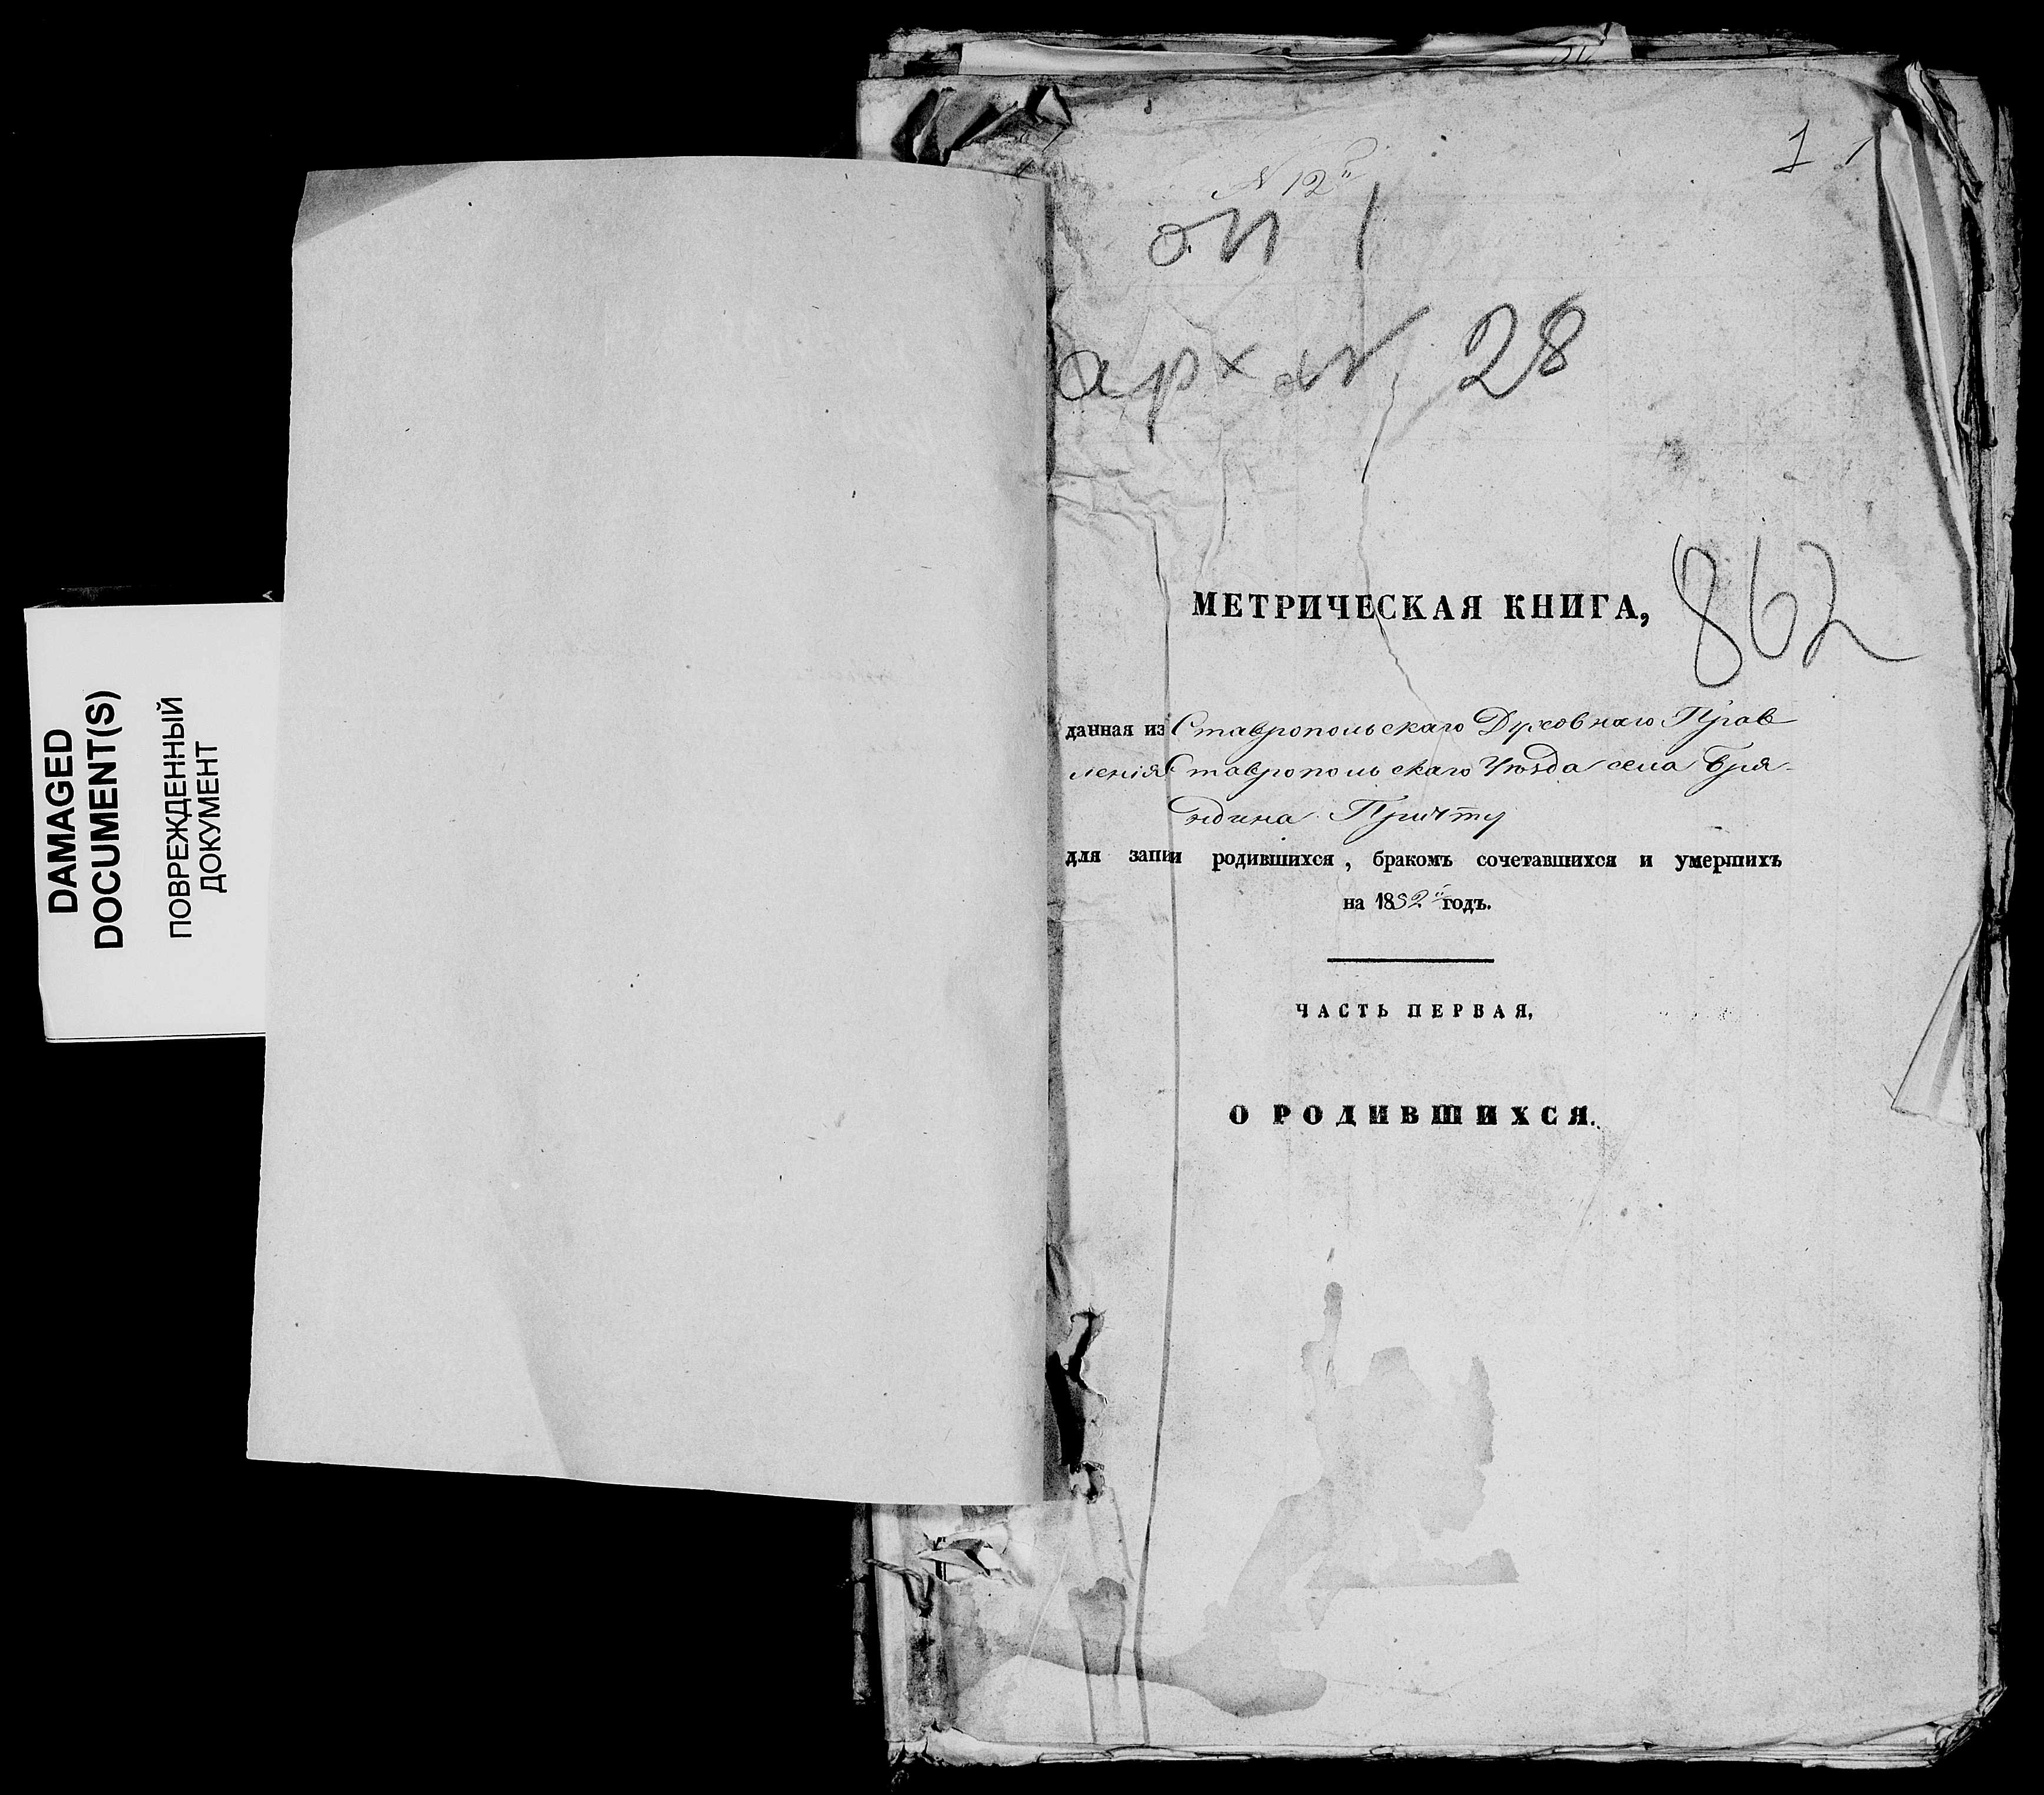 DAMAGED
DOCUMENT(S)
ПОВРЕЖДЕННЫЙ
ДОКУМЕНТ
1
N 12
оп 1
арх № 28
862
МЕТРИЧЕСКАЯ КНИГА,
данная из Ставропольскаго Духовнаго Прав
ленія Ставропольскаго Уѣзда села Бря-
ндина Причту
для запи и родившихся, бракомъ сочетавшихся и умершихъ
на 1832й годъ.
ЧАСТЬ ПЕРВАЯ,
О РОДИВШИХСЯ.